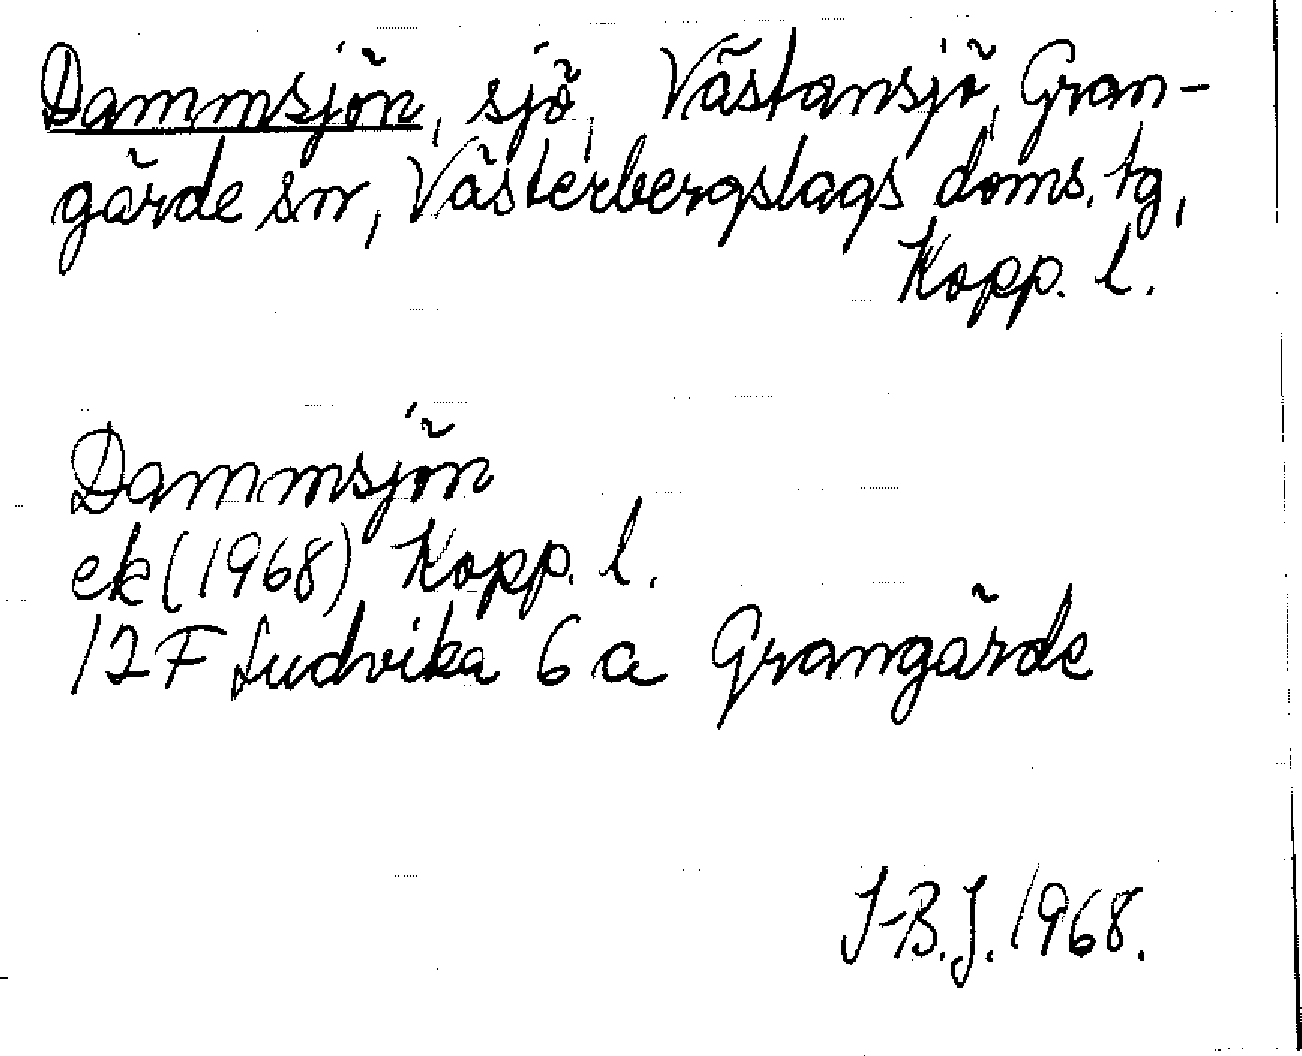 Dammsjön, sjö, Västansjö, Gran-
gärde sn, Västerbergslags doms. tg,
Kopp. l.
Dammsjön
ek (1968) Kopp. l.
12F Ludvika 6 a Grangärde
J-B.J. 1968.